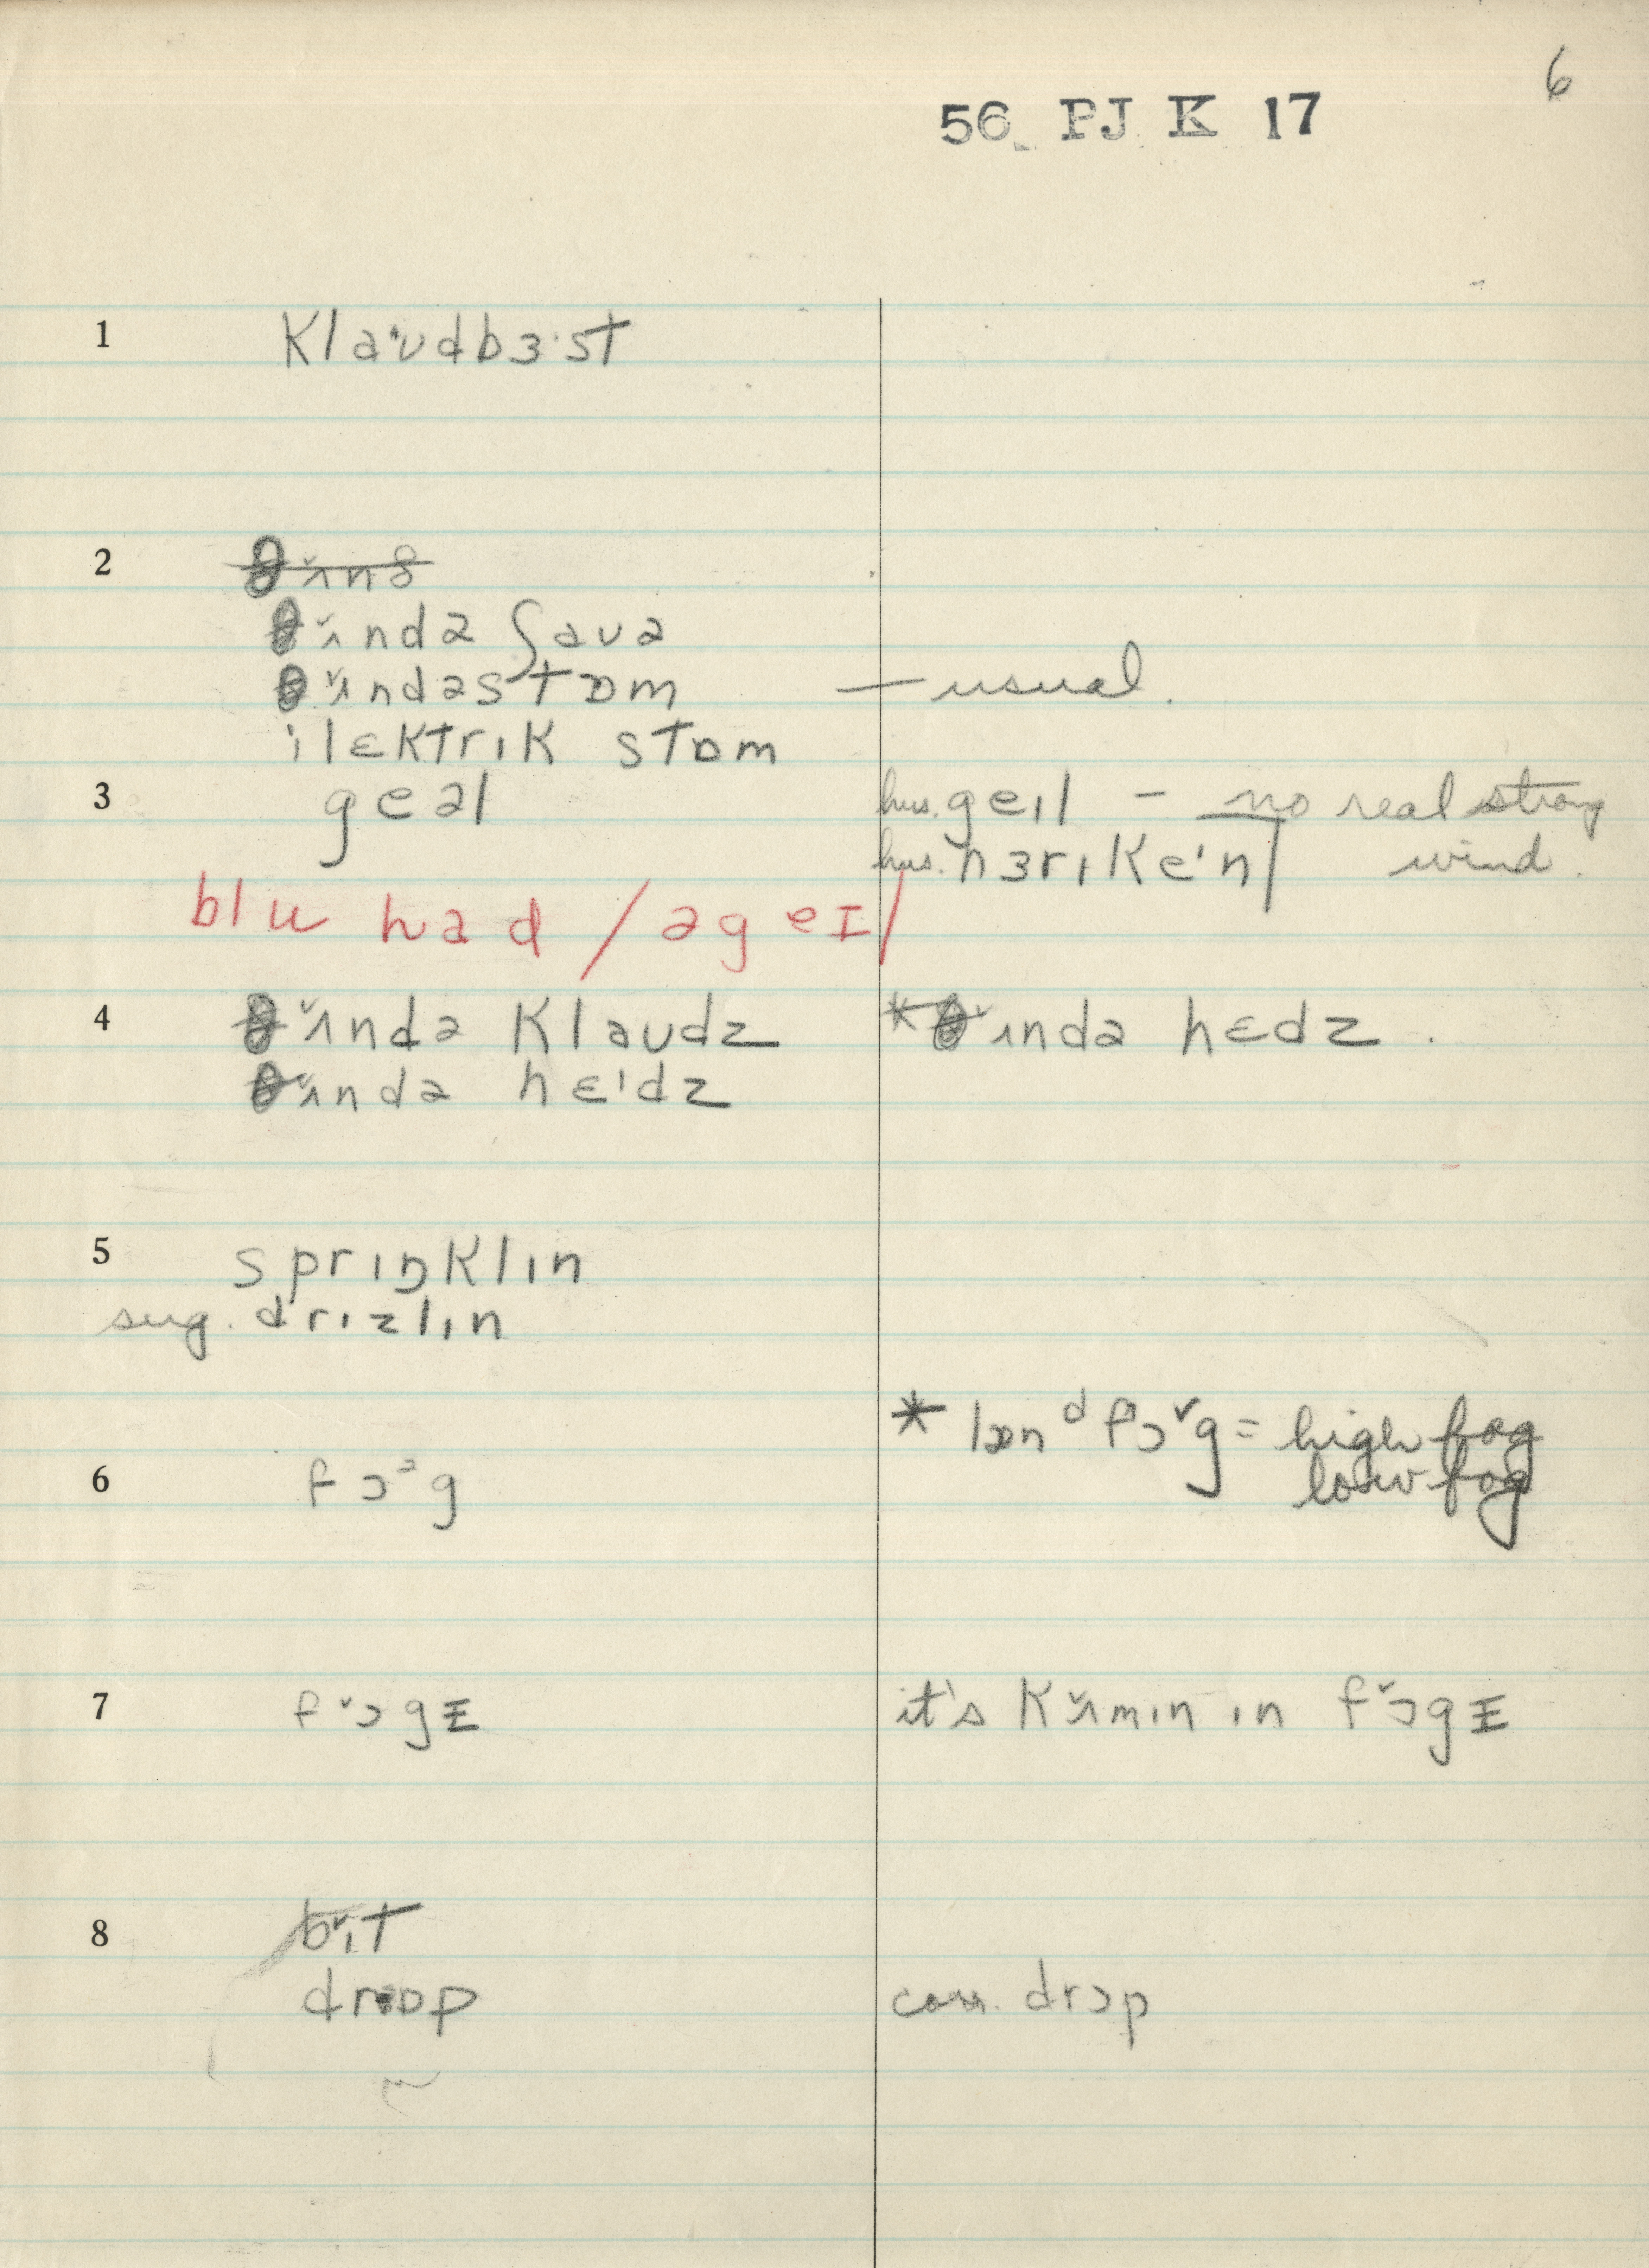 6
56 PJ K 17
1 klaˈʊdbɜ·st
2 θʌ˅nθ
θʌ˅ndə ʃaʊə
θʌ˅ndəstɒm — usual.
ilɛktrɪk stɒm
3 geəl hus. geɪl – no real strong
hus. hɜrɪkeˈn| wind.
blu had / ə geɪl
4 θʌ˅ndə klaudz * θʌ˅ndə hɛdz.
θʌ˅ndə hɛˈdz
5 sprɪŋklɪn
sug. drɪzlɪn
* læn ᵈ fɔ˅g = high fog
low fog
6 fɔᵊg
7 f˅ɔgɪ it's kʌ˅mɪn ɪn f˅ɔgɪ
8 b˅ɪt
drɒp corr. drɔp